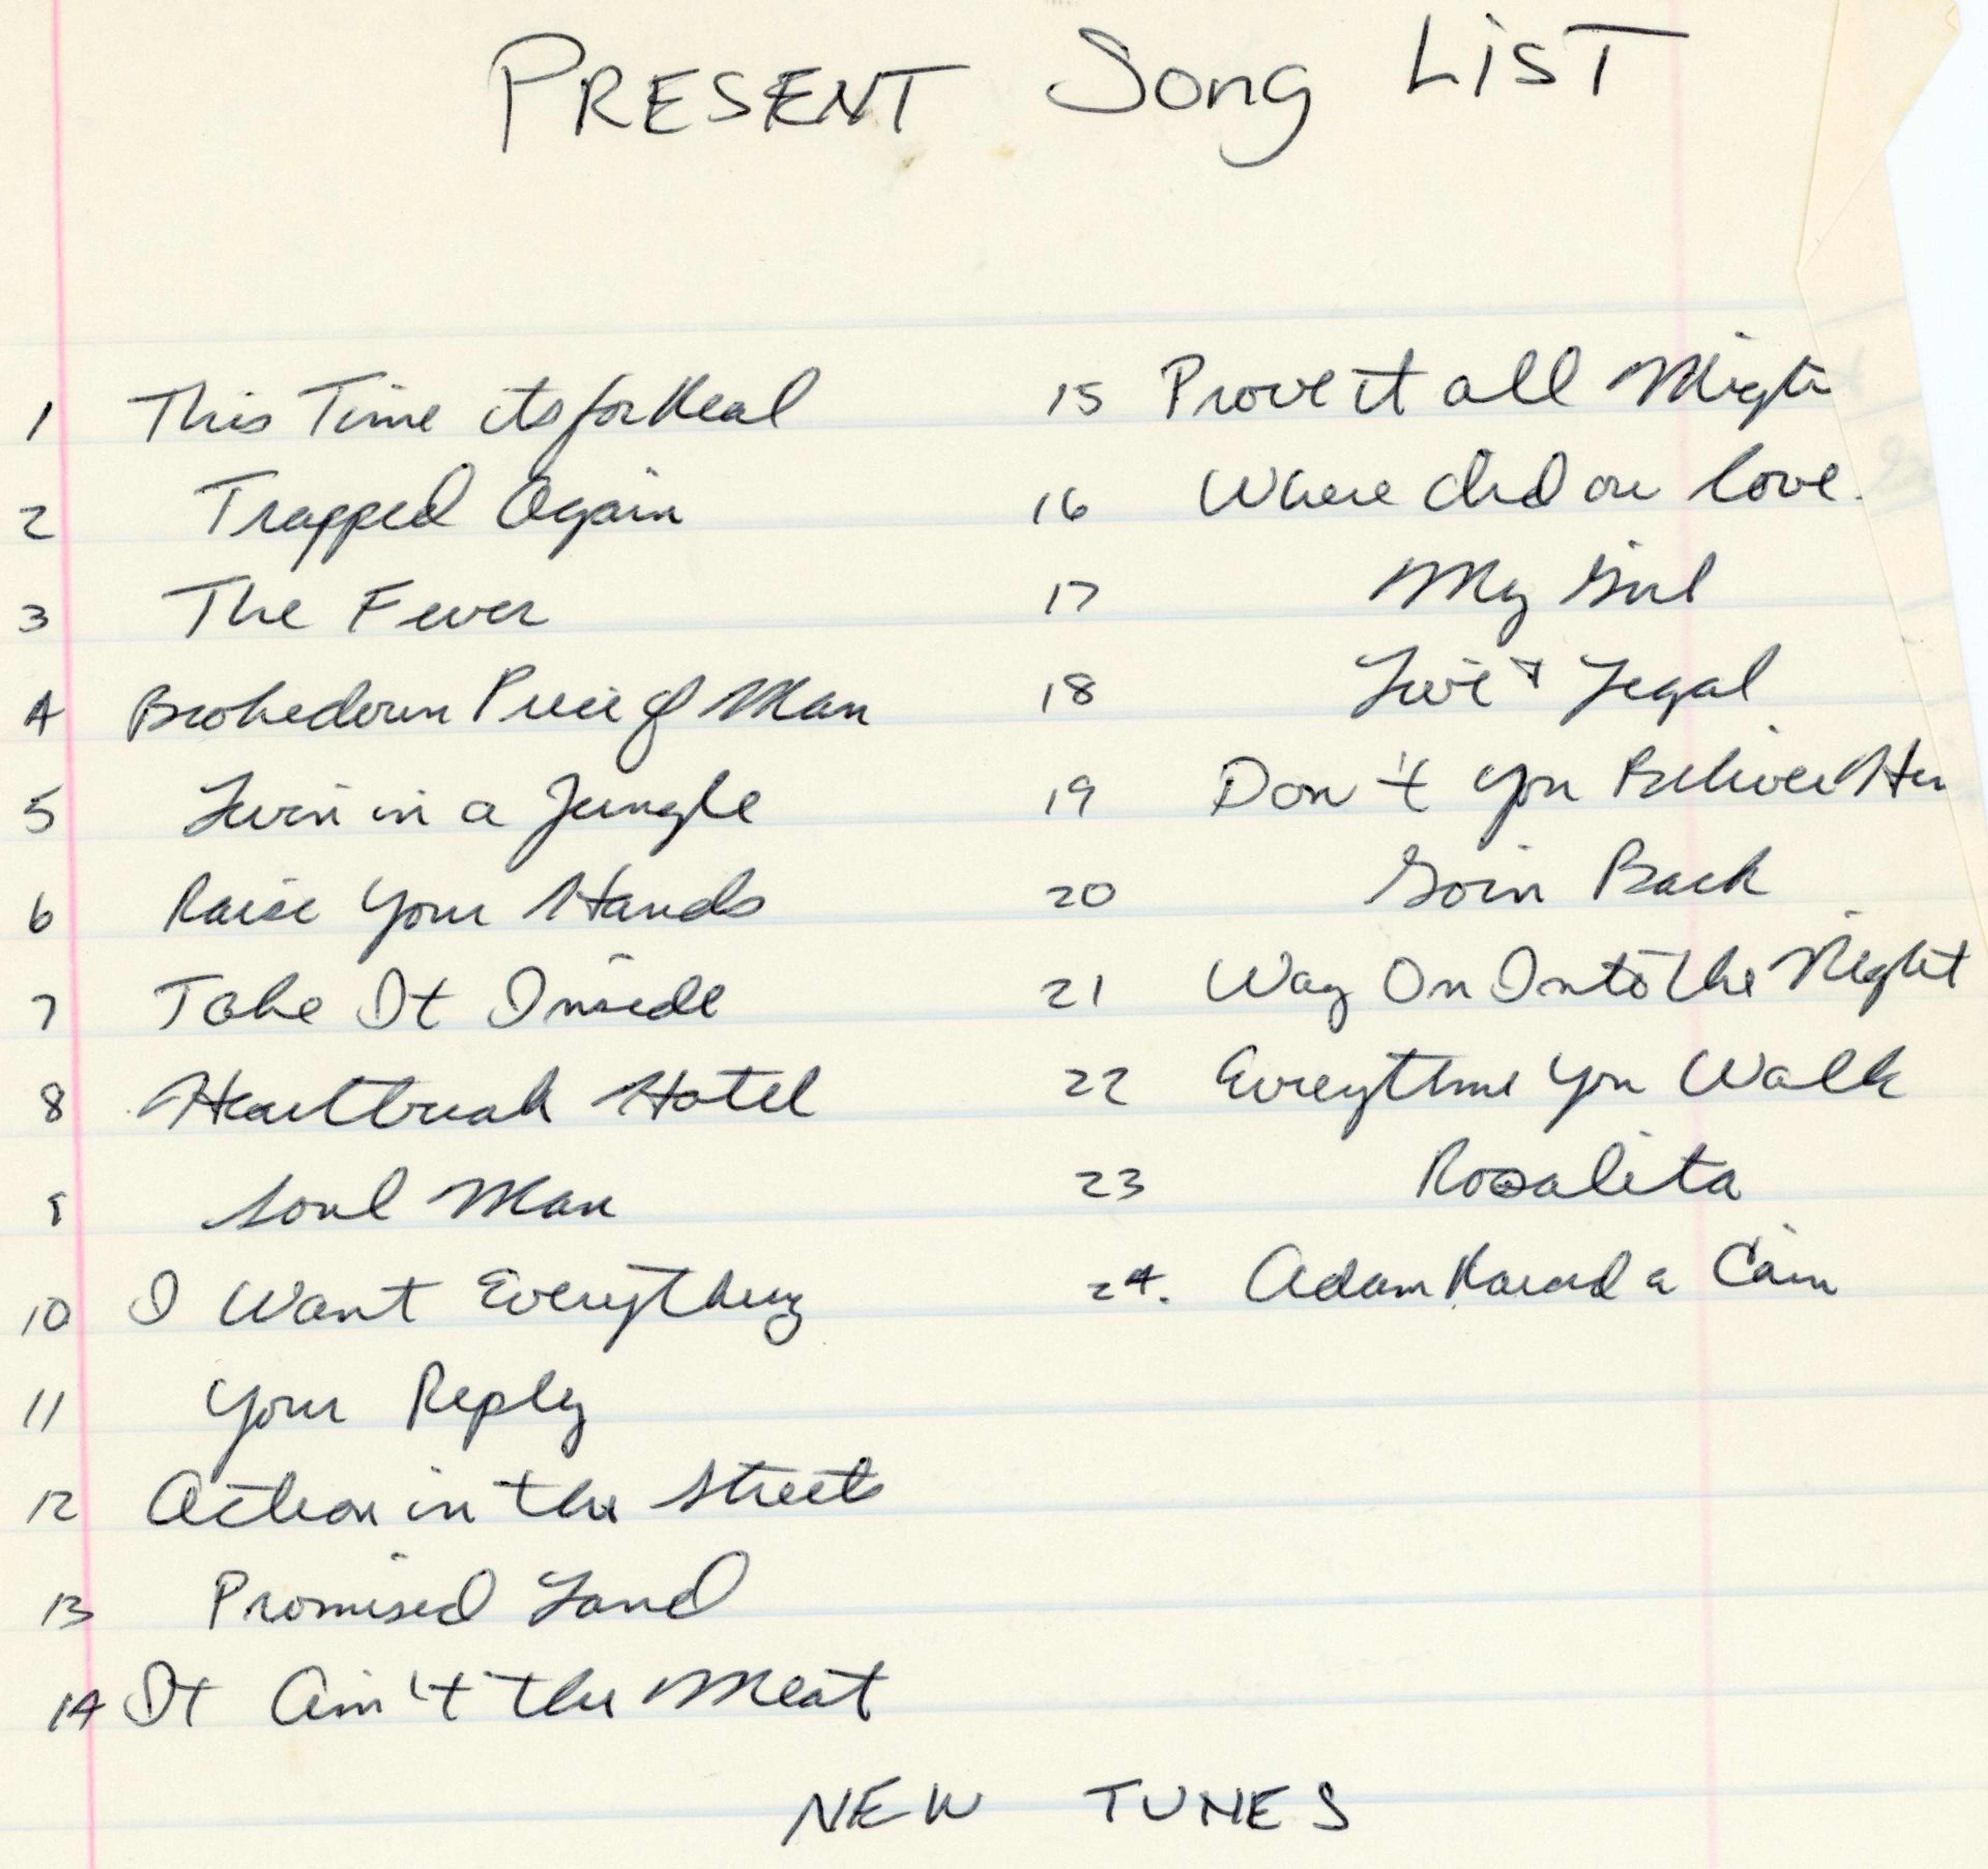 PRESENT Song LiST
1 This Time its for Real
2 Trapped Again
3 The Fever
4 Brokedown Piece of Man
5 Livin in a Jungle
6 Raise Your Hands
7 Take It Inside
8 Heartbreak Hotel
9 Soul Man
10 I Want Everything
11 Your Reply
12 Action in the Streets
13 Promised Land
14 It Ain't the Meat
15 Prove it all Night
16 Where did our love
17 My Girl
18 Livi Legal
19 Don't you Believe Her
20 Goin Back
21 Way On Into the Night
22 Evreytime You Walk
23 Rosalita
24. Adam Raised a Cain
NEW TUNES